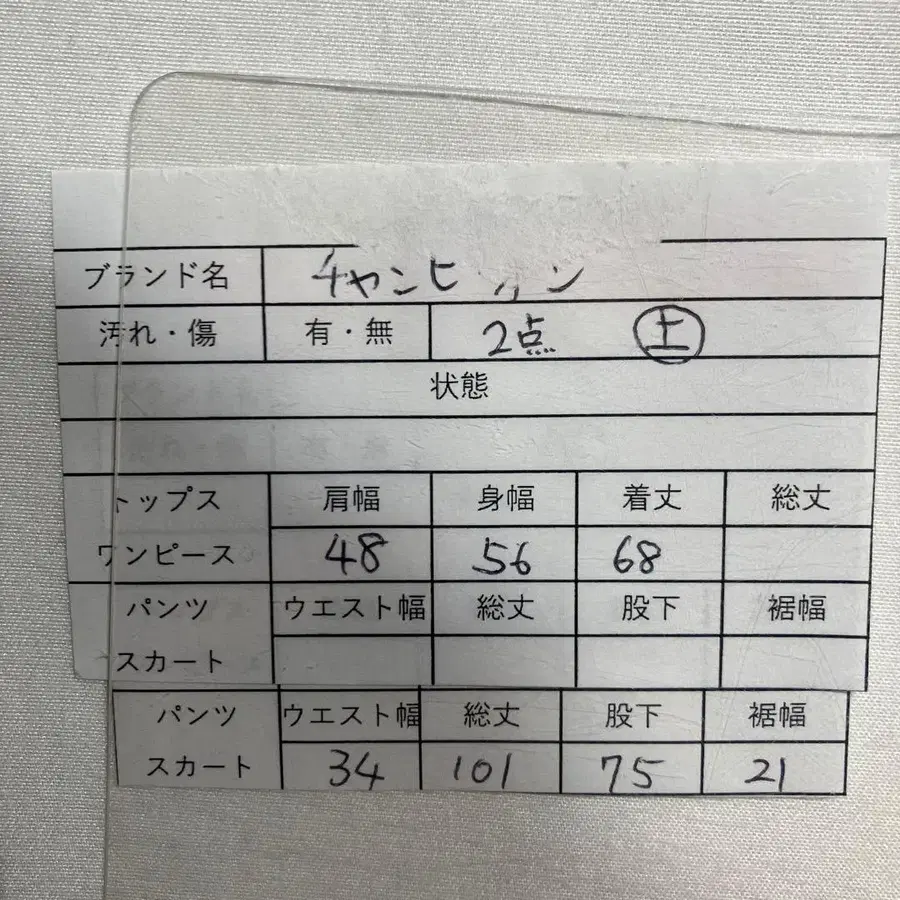 ブランド名 チャンピオン
汚れ・傷 有・無 2点 土
状態
トップス 肩幅 身幅 着丈 総丈
ワンピース 48 56 68
パンツ ウエスト幅 総丈 股下 裾幅
スカート
パンツ ウエスト幅 総丈 股下 裾幅
スカート 34 101 75 21